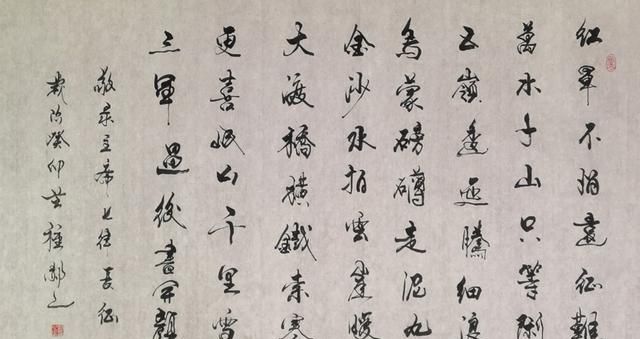 红軍不怕遠征難
萬水千山只等閑
五嶺逶迤騰細浪
烏蒙磅礴走泥丸
金沙水拍雲崖暖
大渡橋橫鐵索寒
更喜岷山千里雪
三軍過後盡開顏
敬录主席七律長征
歲次癸卯芒種